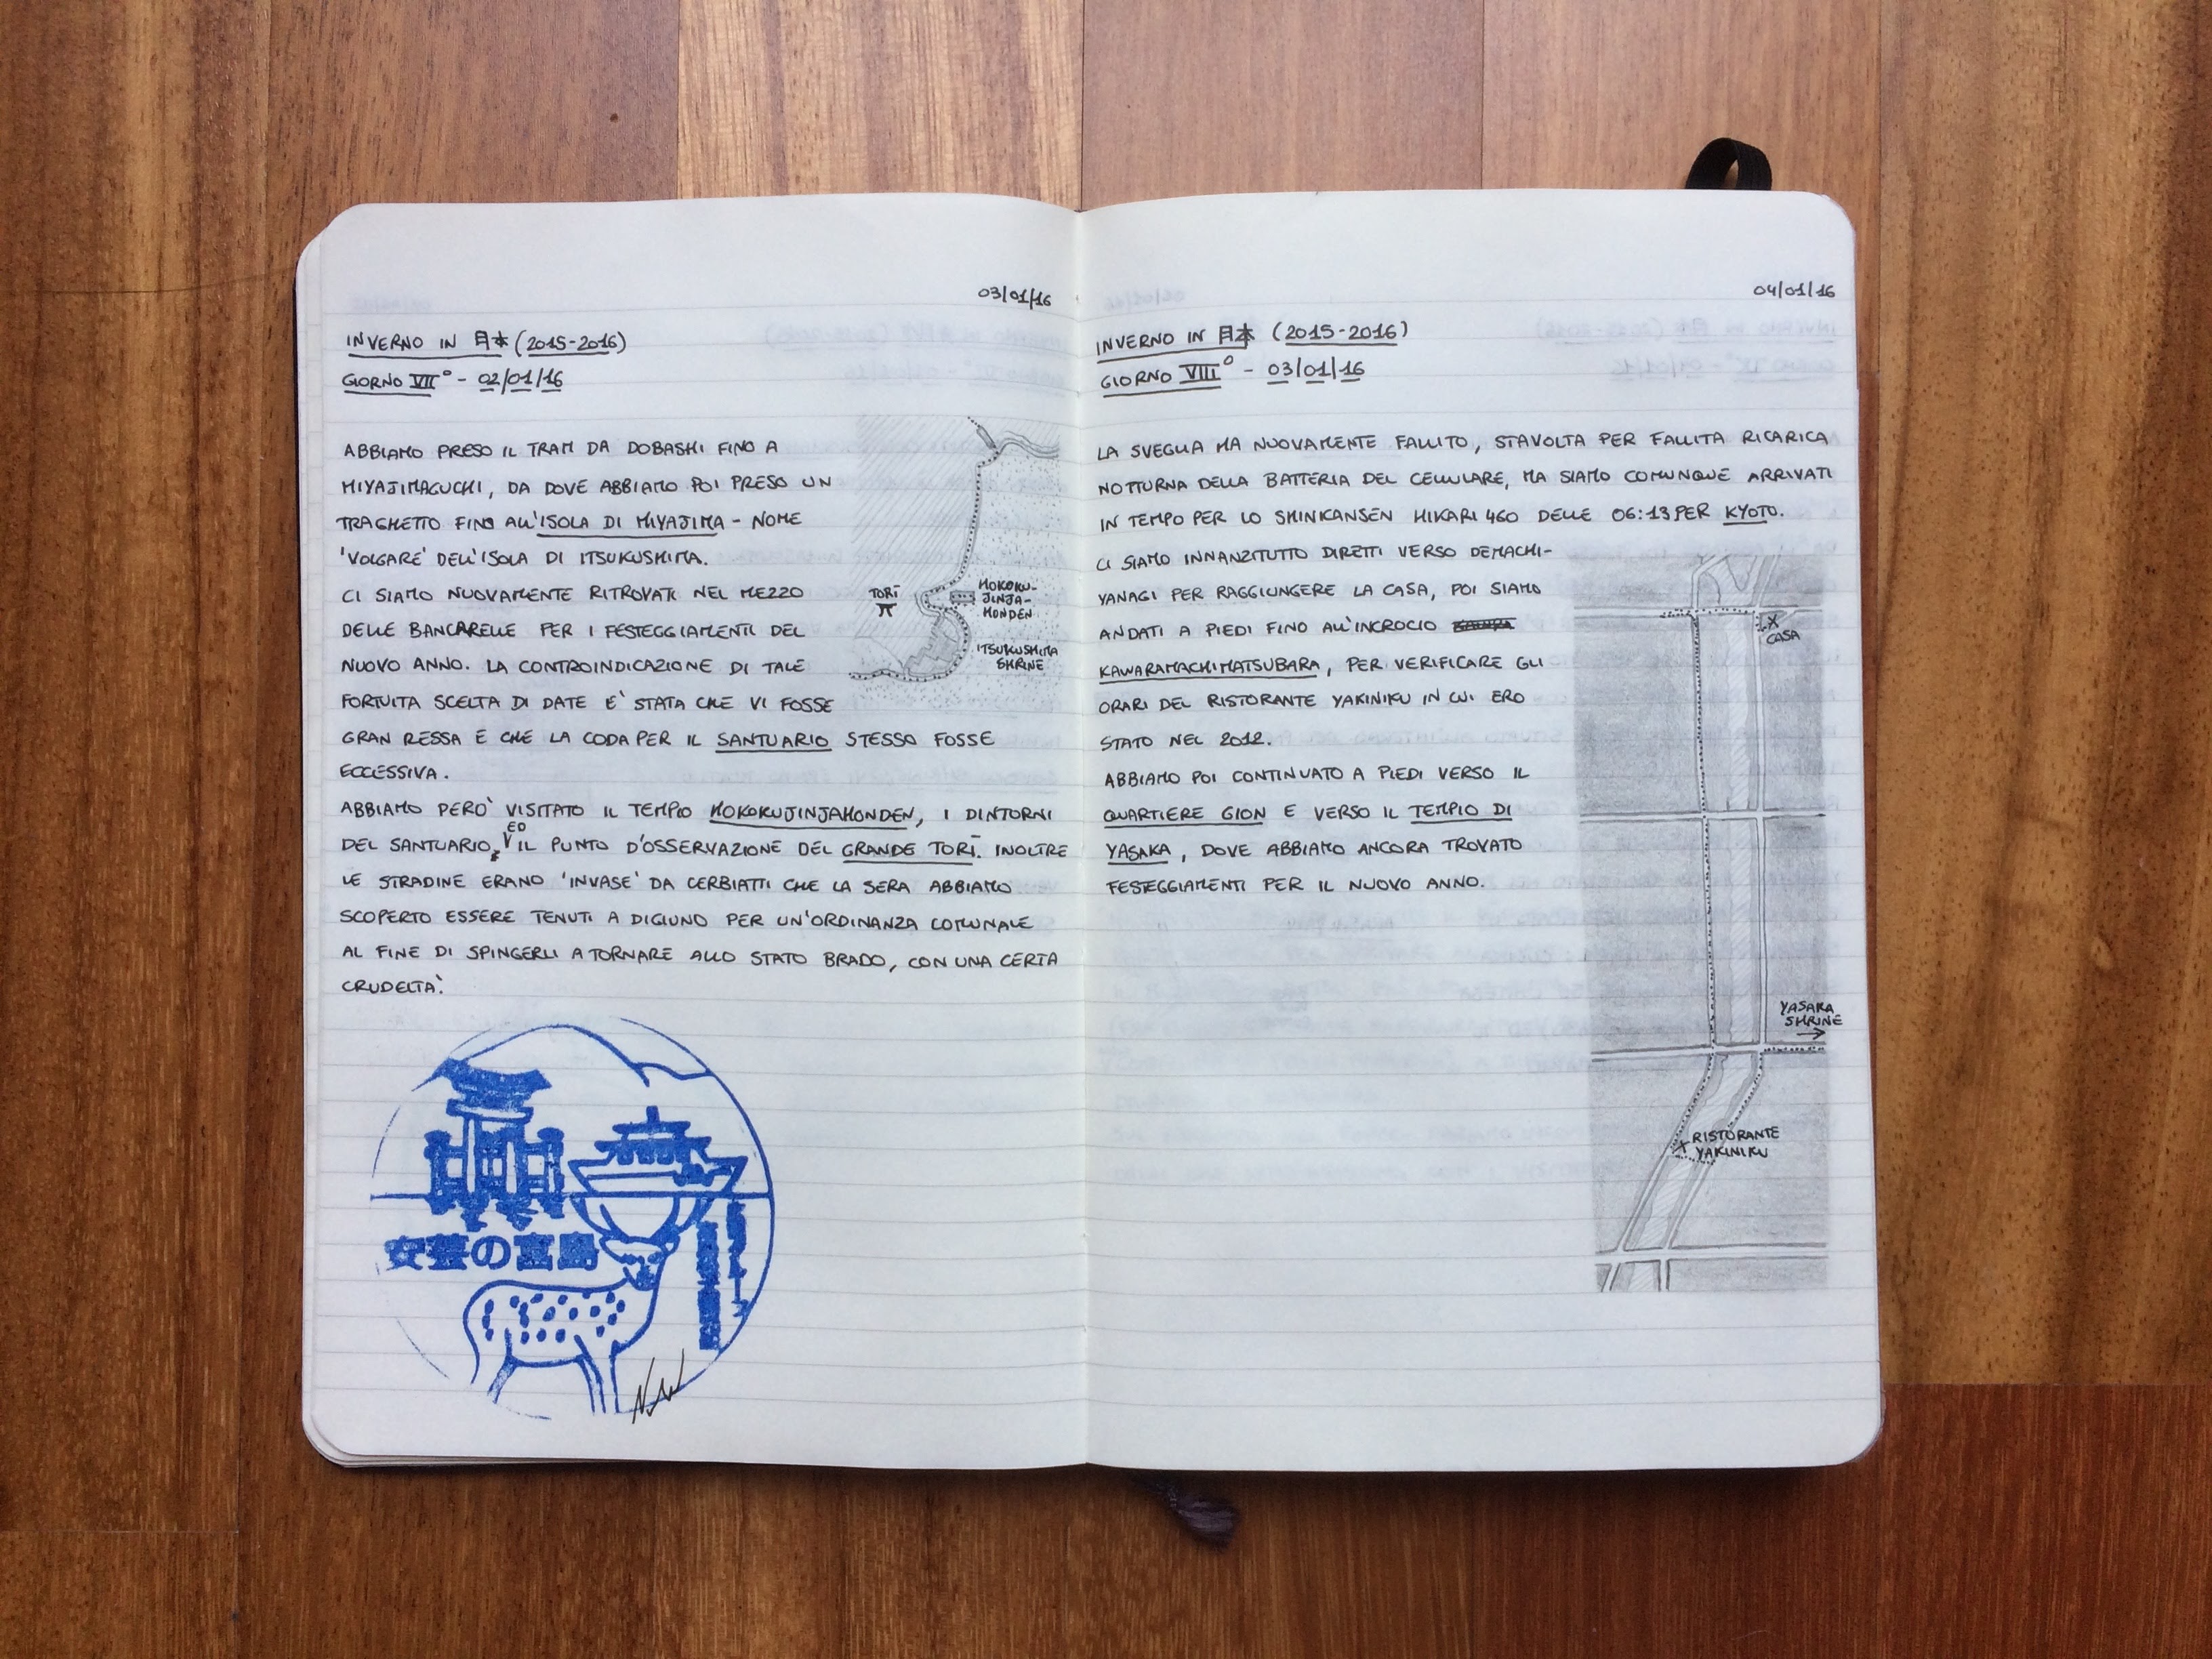 03/01/16
INVERNO IN 日本 (2015-2016)
GIORNO VII° - 02/01/16
ABBIAMO PRESO IL TRAM DA DOBASHI FINO A
MIYAJIMAGUCHI, DA DOVE ABBIAMO POI PRESO UN
TRAGHETTO FINO ALL'ISOLA DI MIYAJIMA - NOME
'VOLGARE' DELL'ISOLA DI ITSUKUSHIMA.
CI SIAMO NUOVAMENTE RITROVATI NEL MEZZO
DELLE BANCARELLE PER I FESTEGGIAMENTI DEL
NUOVO ANNO. LA CONTROINDICAZIONE DI TALE
FORTUITA SCELTA DI DATE E' STATA CHE VI FOSSE
GRAN RESSA E CHE LA CODA PER IL SANTUARIO STESSO FOSSE
ECCESSIVA.
ABBIAMO PERO' VISITATO IL TEMPIO HOKOKUJINJAHONDEN, I DINTORNI
DEL SANTUARIO, ED IL PUNTO D'OSSERVAZIONE DEL GRANDE TORĪ. INOLTRE
LE STRADINE ERANO 'INVASE' DA CERBIATTI CHE LA SERA ABBIAMO
SCOPERTO ESSERE TENUTI A DIGIUNO PER UN'ORDINANZA COMUNALE
AL FINE DI SPINGERLI A TORNARE ALLO STATO BRADO, CON UNA CERTA
CRUDELTA'.
TORĪ
HOKOKU-
JINJA-
HONDEN
ITSUKUSHIMA
SHRINE
安芸の宮島
04/01/16
INVERNO IN 日本 (2015-2016)
GIORNO VIII° - 03/01/16
LA SVEGLIA HA NUOVAMENTE FALLITO, STAVOLTA PER FALLITA RICARICA
NOTTURNA DELLA BATTERIA DEL CELLULARE, MA SIAMO COMUNQUE ARRIVATI
IN TEMPO PER LO SHINKANSEN HIKARI 460 DELLE 06:13 PER KYOTO.
CI SIAMO INNANZITUTTO DIRETTI VERSO DEMACHI-
YANAGI PER RAGGIUNGERE LA CASA, POI SIAMO
ANDATI A PIEDI FINO ALL'INCROCIO
KAWARAMACHIMATSUBARA, PER VERIFICARE GLI
ORARI DEL RISTORANTE YAKINIKU IN CUI ERO
STATO NEL 2012.
ABBIAMO POI CONTINUATO A PIEDI VERSO IL
QUARTIERE GION E VERSO IL TEMPIO DI
YASAKA, DOVE ABBIAMO ANCORA TROVATO
FESTEGGIAMENTI PER IL NUOVO ANNO.
X
CASA
YASAKA
SHRINE
→
X RISTORANTE
YAKINIKU